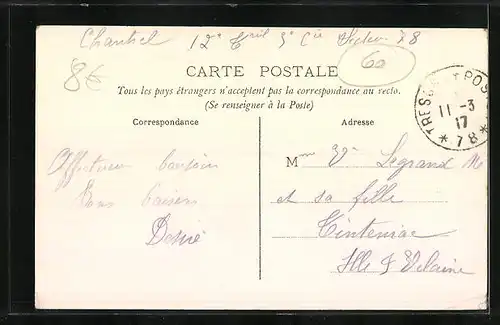 12e 3e Cie Secteur 78
8€
60
CARTE POSTALE
Tous les pays étrangers n'acceptent pas la correspondance au recto.
(Se renseigner à la Poste)
TRESOR ET POSTES
11-3
17
* 78 *
Correspondance
Adresse
Mme Ve Legrand M
et sa fille
Affectueux
Bons baisers
Tinteniac
Désiré
Ille & Vilaine